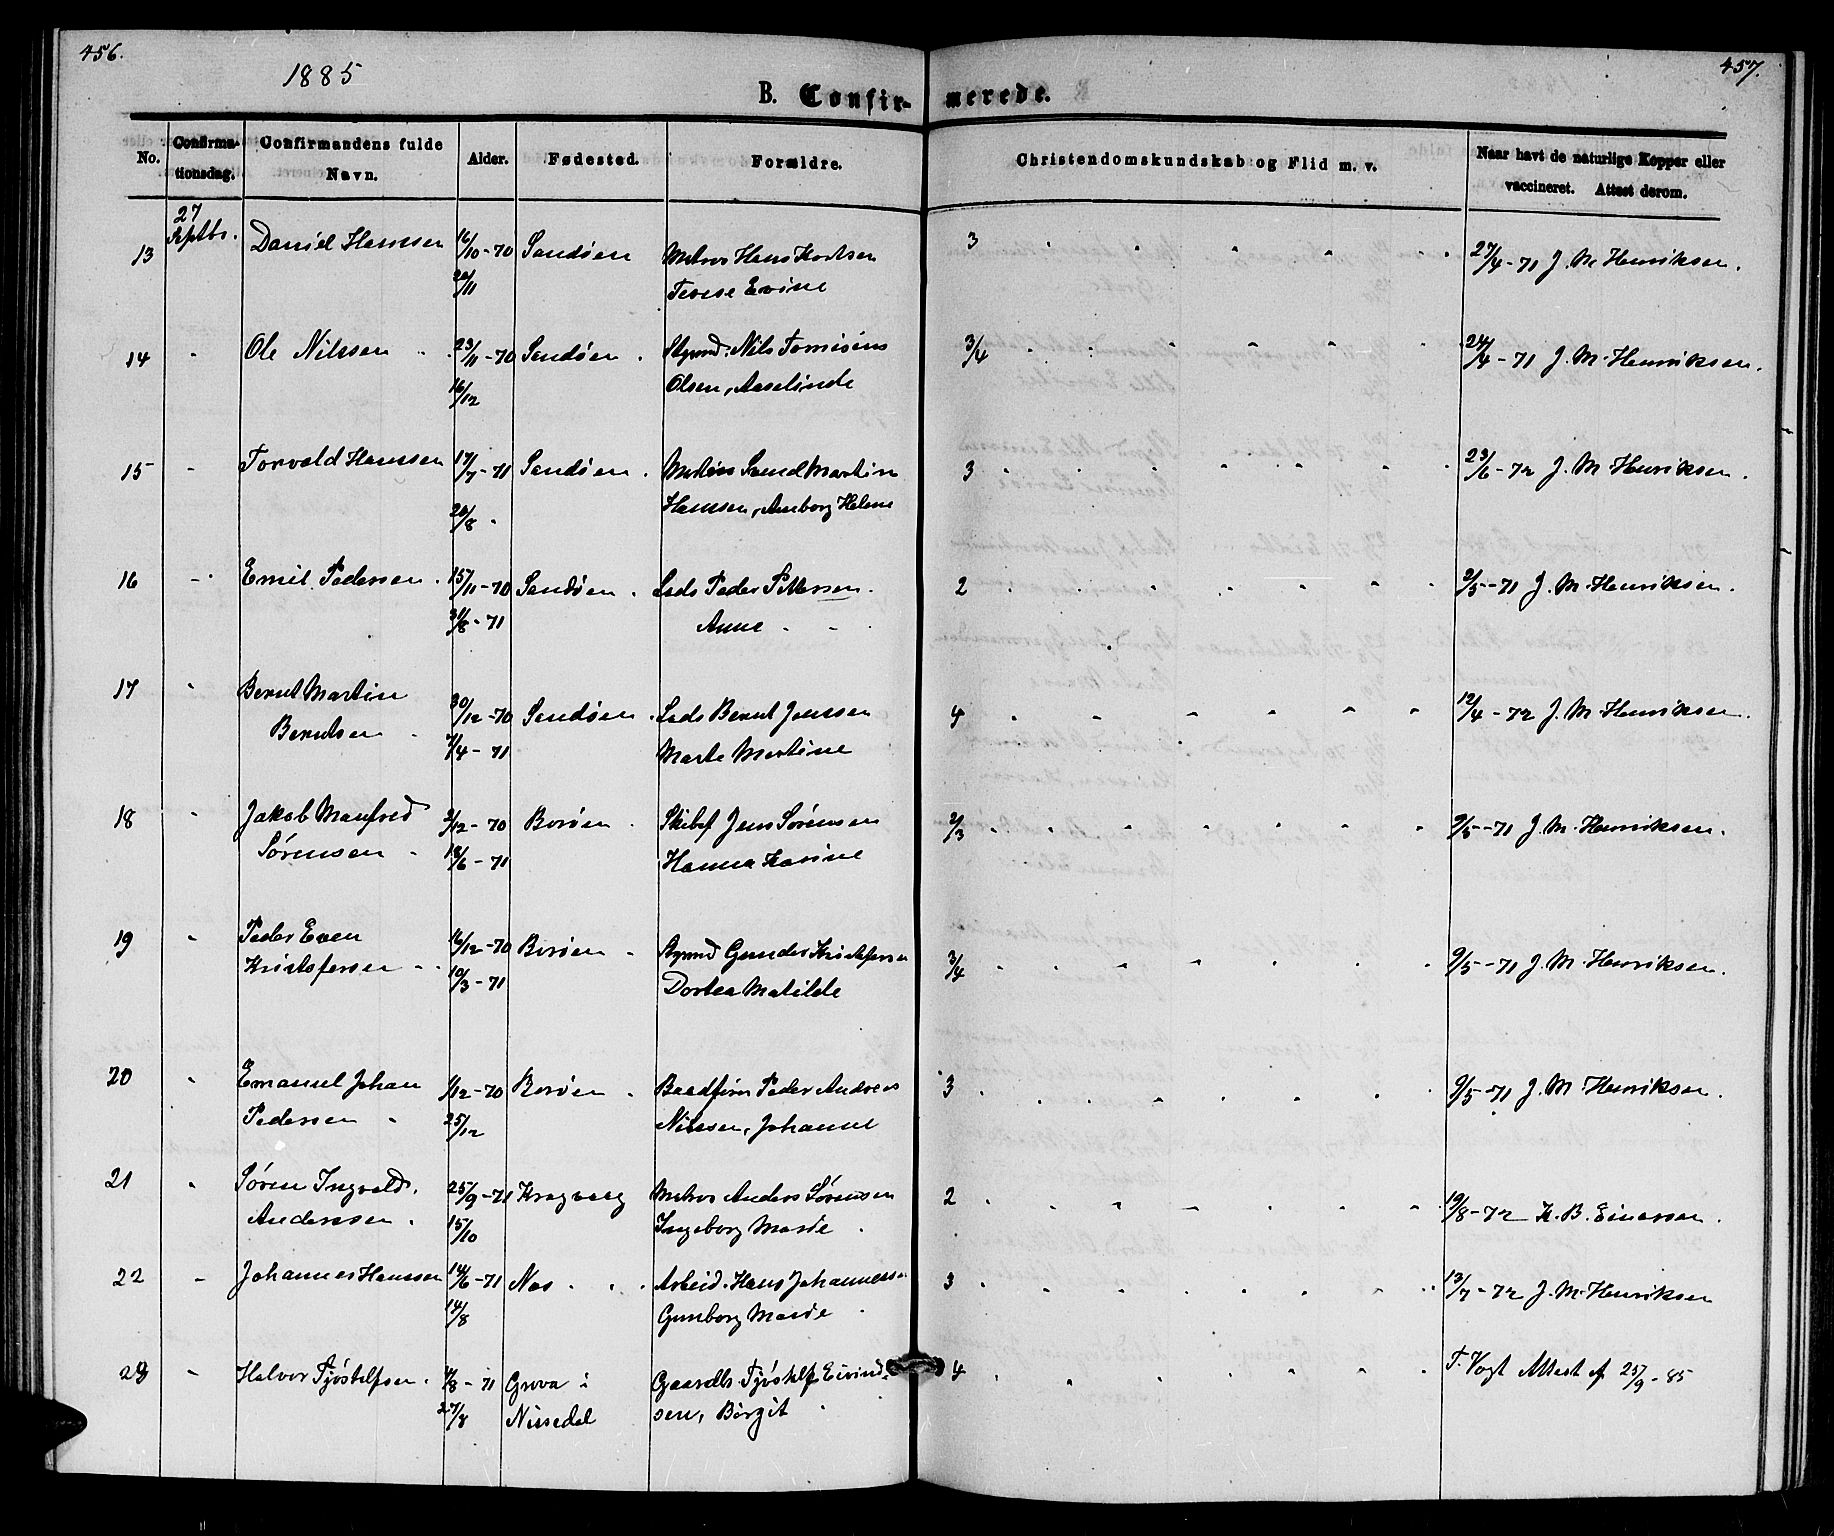 456.
457.
1885
B. Confir- merede.
No.
Confirma-
tionsdag.
Confirmandens fulde
Navn.
Alder.
Fødested.
Forældre.
Christendomskundskab og Flid m. v.
Naar havt de naturlige Kopper eller
vaccineret. Attest derom.
27
Septbr.
13 Daniel Hanssen 16/10-70 Sandøen Matros Hans 3 27/4-71 J. M. Henriksen.
20/11 Terese Evine
14 - Ole Nilssen 23/11-70 Sandøen. Styrmd. Nils Tomisius 3/4 24/4-71 J. M. Henriksen.
16/12 Olsen, Aaselinde
15 - Torvald Hanssen 17/7-71 Sandøen. Matros Svend Martin 3 23/6-72 J. M. Henriksen.
20/8 Hanssen, Anborg Helene
16 - Emil Pedersen. 15/11-70 Sandøen. Lods Peder Pettersen. 2 2/5-71 J. M. Henriksen.
31/8-71 Anne - -
17 - Bernt Martin 30/12-70 Sandøen. Lods Bernt Jenssen 4 12/4-72 J. M. Henriksen.
Berntsen 7/4-71 Marte Martine
18 - Jakob Manfred 2/12-70 Borøen Skibsf Jens Sørensen 2/3 9/5-71 J. M. Henriksen.
Sørensen 18/6-71 Hanna Karine
19 - Peder Even 16/12-70 Borøen Styrmd Gunder Kristofersen 3/4 9/5-71 J. M. Henriksen.
Kristofersen 10/3-71 Dortea Matilde
20 - Emanuel Johan 1/12-70 Borøen Baadform Peder Andreas 3 9/5-71 J. M. Henriksen.
Pedersen 25/12 Nilssen, Johanne
21 - Søren Ingvald. 25/9-71 Kragvaag Matros Anders Sørensen 2 19/8-72 K. B. Einersen.
Anderssen. 15/10 Ingeborg Marie
22 - Johannes Hanssen 14/6-71 Nes Arbeid. Hans Johannessen 3 13/7-72 J. M. Henriksen
14/8 Gunborg Marie
23 - Halvor Tjøstelfsen. 4/8-71 Grova i Gaardbr. Tjøstelf Eivind- 4 T. Vogt Attest af 25/9-85
27/8 Nissedal sen, Børgit